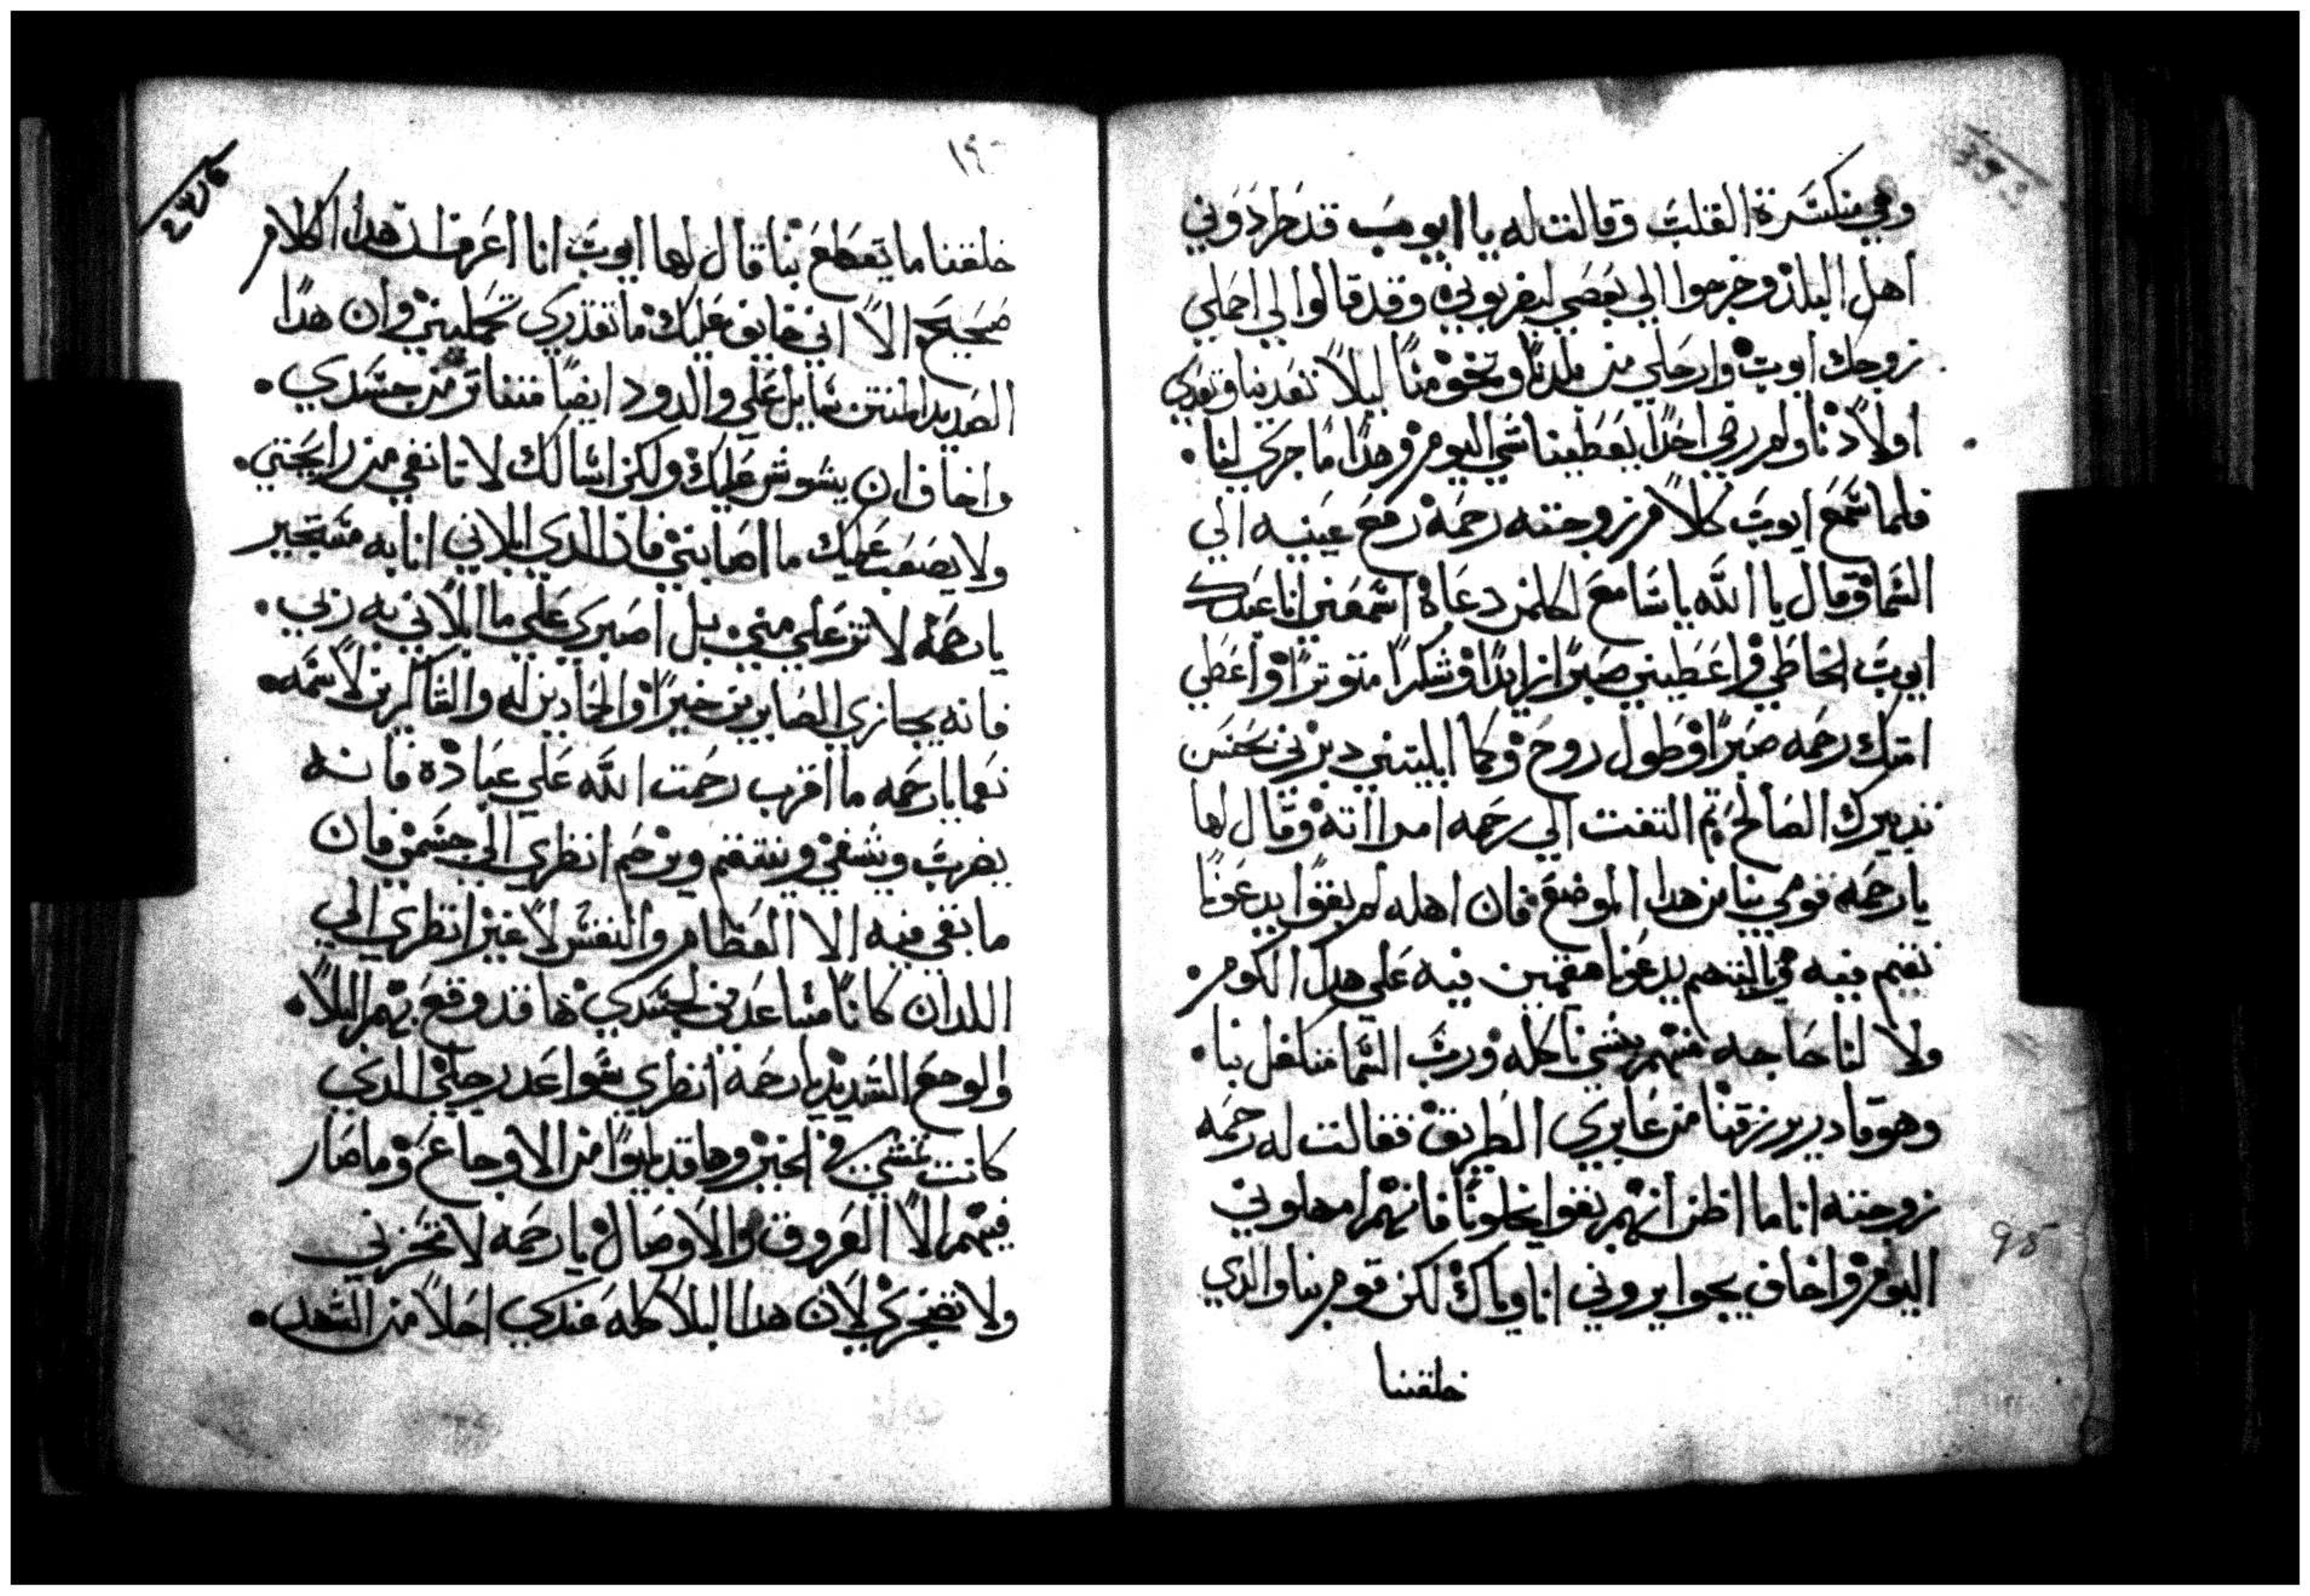 وهي منكسرة القلب وقالت له يا ايوب قد حردوني
اهل البلد وخرجوا الي بعصي ليضربوني وقد قالوا لي احملي
زوجك ايوب وارحلي من بلدنا وتخفي منا ليلاً تعدينا وتعدي
اولادنا ولم رضي احداً يعطينا شي اليوم وهدا ما جري لنا .
فلما سمع ايوب كلام زوجته رحمة رفع عينيه الي
السما وقال يا الله يا سامع لكلمن دعاه اسمعني انا عبدك
ايوب الخاطي واعطيني صبراً زايداً وشكراً متوتراً واعطي
امتك رحمه صبراً وطول روح وكما ابليتني دبرني بحسن
تدبيرك الصالح تم التفت الي رحمه امرااته وقال لها
يا رحمه قومي بنا من هدا الموضع فان اهله لم بقوا يدعونا
نقيم فيه ولا ليتهم يدعونا مقيمين فيه علي هدا الكوم .
ولا لنا حاجه منهم بشي ناكله ورب السما متكفل بنا .
وهو قادر يرزقنا من عابري الطريق فقالت له رحمه
زوجته انا ما اظن انهم بقوا يخلونا فانهم امهلوني
اليوم واخاف يجوا يروني انا وياك لكن قوم بنا والدي
خلقتنا
١٩٠
خلقنا ما يقطع بنا قال لها ايوب انا اعرف ان هدا الكلام
صحيح الا اني خايف عليك ما تقدري تحمليني وان هدا
الصديد المنتن سايل علي والدود ايضاً متناتر من جسدي .
واخاف ان يشوش عليك ولكن اسالك لا تانفي من رايحتي .
ولا يصعب عليك ما اصابني فان الدي ابلاني انا به مستجير
يا رحمة لا تزعلي مني بل اصبري علي ما ابلاني به ربي .
فانه يجازي الصابرين خيراً والحادين له والشاكرين لاسمه .
نعم يا رحمه ما اقرب رحمت الله علي عباده فانه
يضرب ويشفي وينتقم ويرحم انظري الي جسمي فان
ما بقي فيه الا العظام والنفس لا غير انظري الي
اللدان كانا مساعدين لجسدي ها قد وقع بهم البلا .
والوجع الشديد يا رحمة انظري سواعد رجلي الدي
كانت تمشي في الخير وها قد بليوا من الاوجاع وما صار
فيهم الا العروق والاوصال يا رحمه لا تحزني
ولا تضجري لان هدا البلا كله عندي احلا من الشهد .